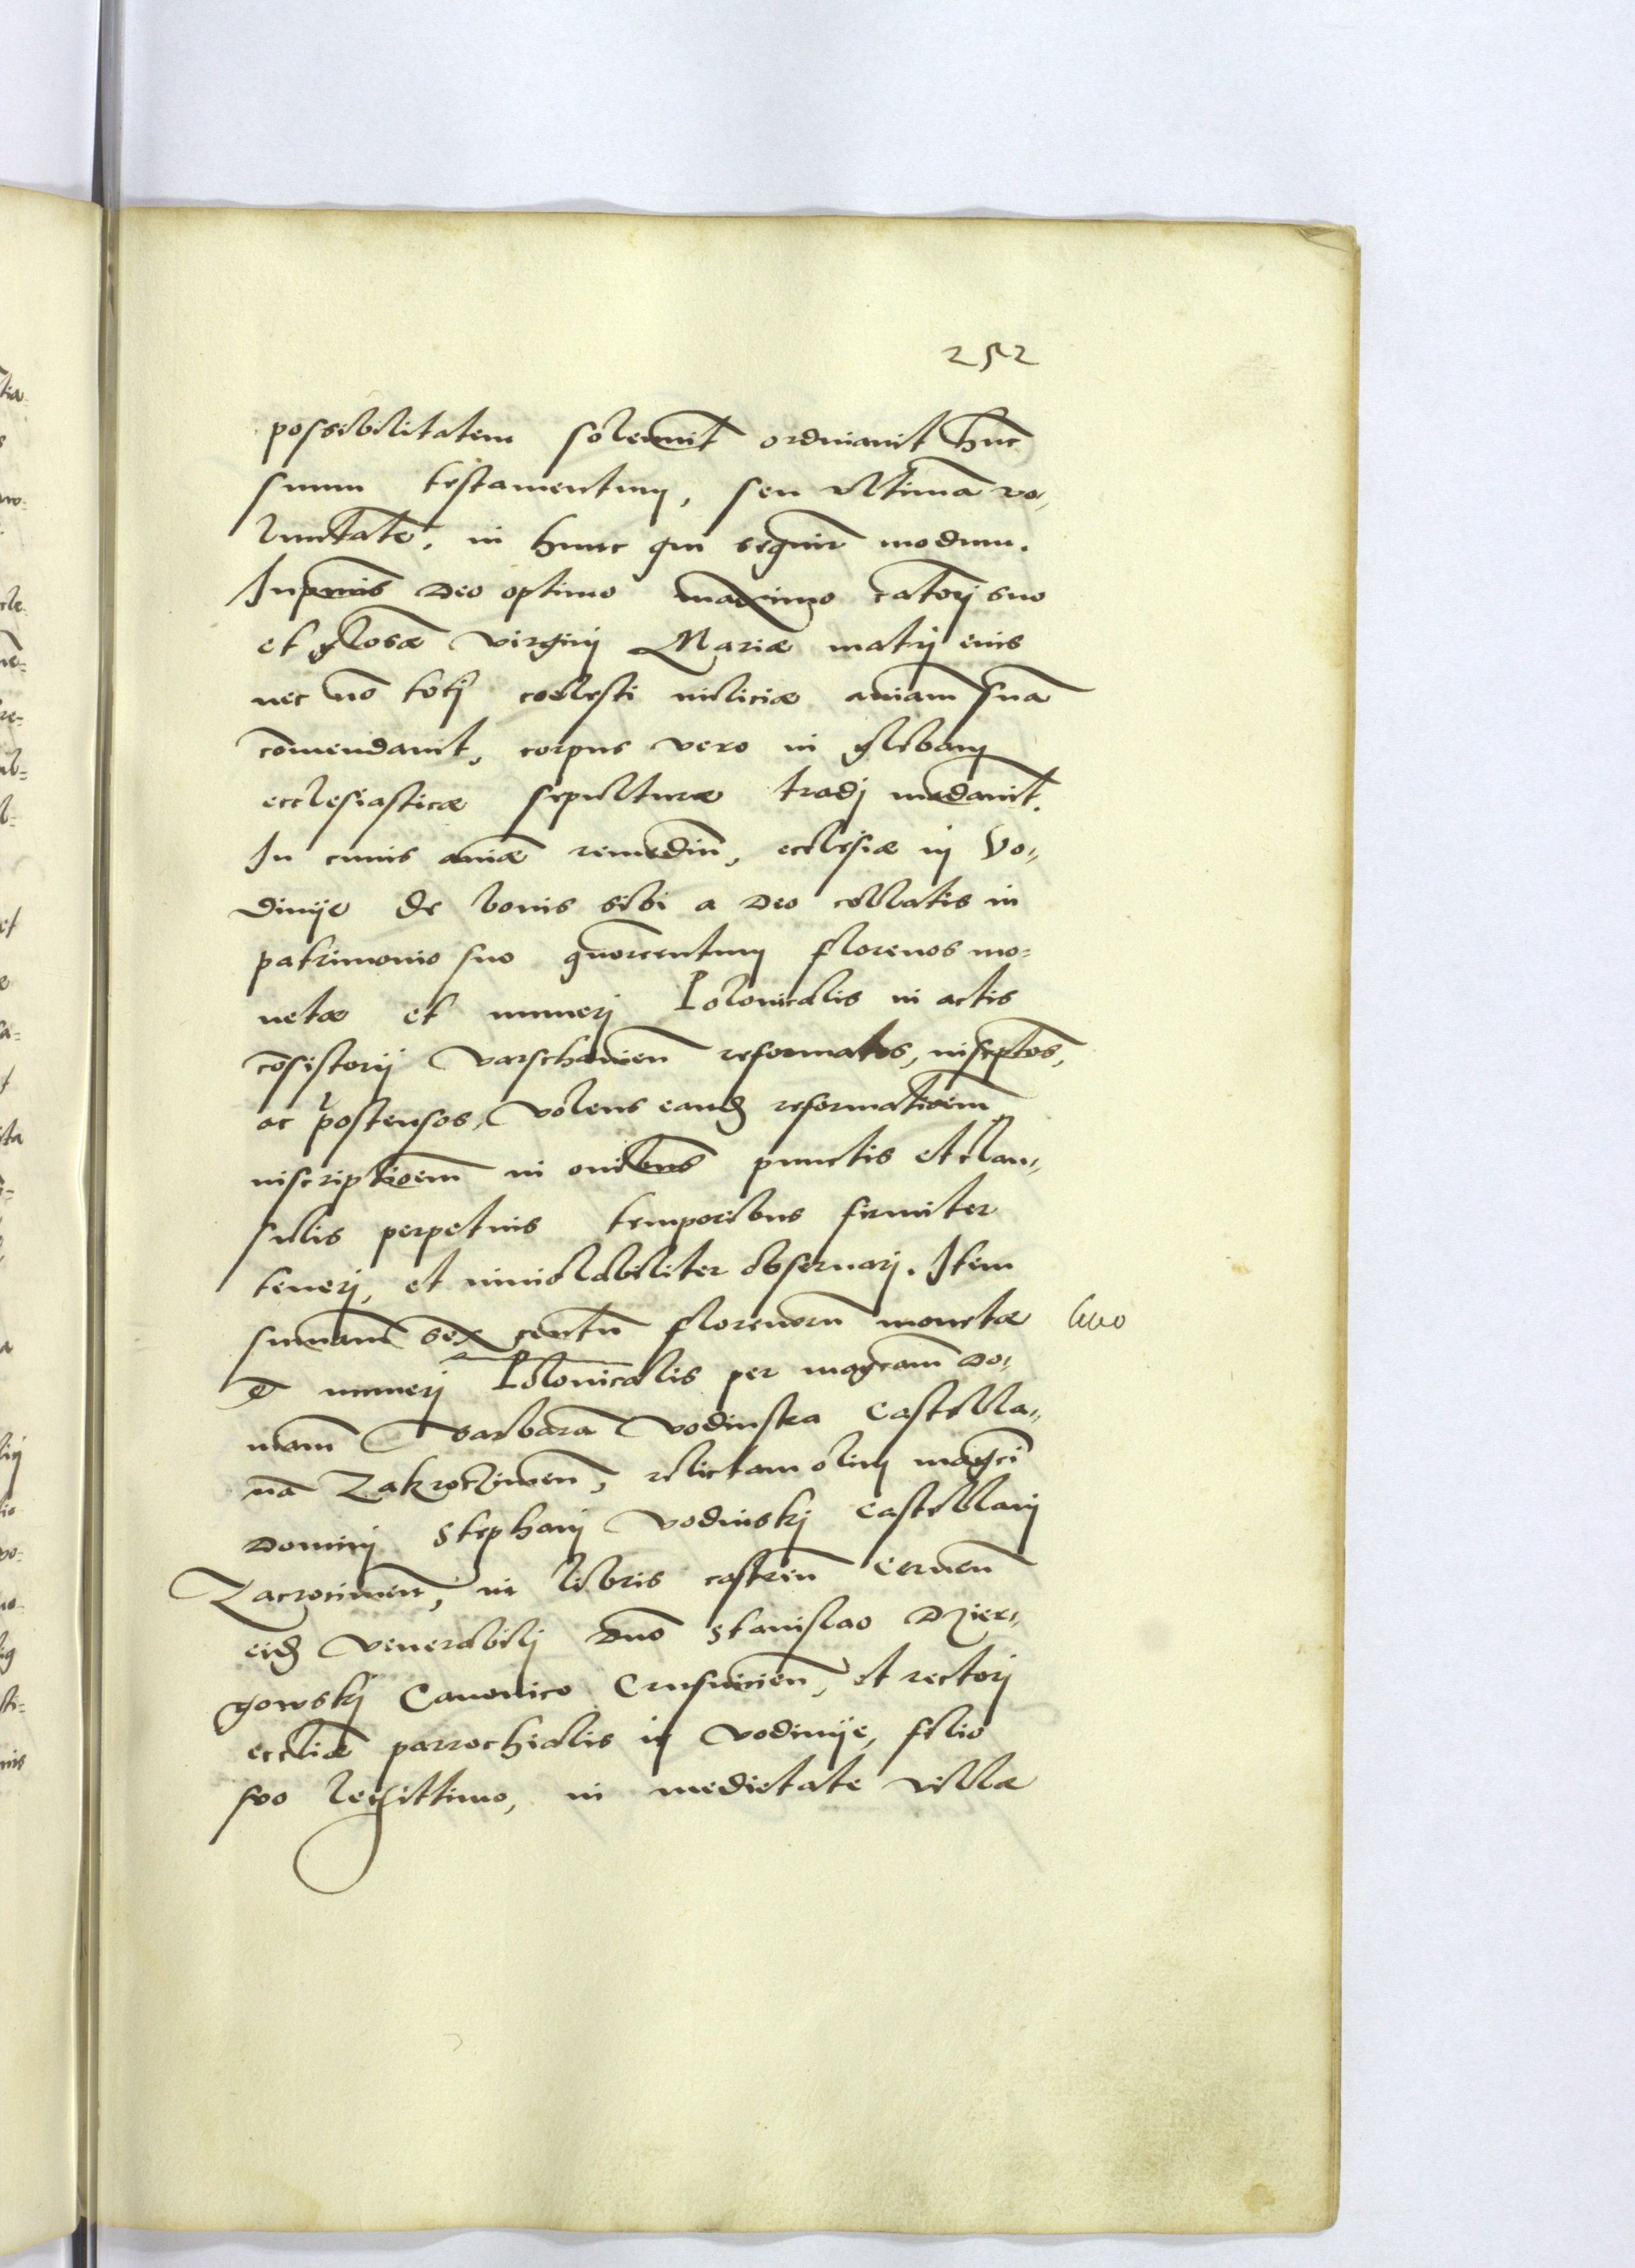 252
possibilitatem solemnit ordinauit hunc
suum testamentum, seu vltimā vo„
luntatē, in hunc qui seqnir modum.
Inpmis Deo optimo maximo catorj suo
et glosæ virginj Mariæ matrj eius
nec nō totj coelesti miliciæ aniam suā
cōmendauit, corpus vero in glebam
ecclesiasticæ sepulturæ tradj mādauit.
In cuius aniæ remediū, ecclesiæ in Vo„
dinije de bonis sibi a Deo collatis in
patrimonio suo qnorcentum florenos mo=
netæ et numerj Polonicalis in actis
cōsistorij Varschauien reformatos, inscptos,
ac postensos, Volens eand reformatioem
inscriptioem in onibus punctis et clau„
sulis perpetuis temporibus firmiter
tenerj, et inuiolabiliter obseruarj. Item
summam sex centū florenorū monetæ
et numerj Polonicalis per magcam Do„
nam Barbarā Vodinska Castella„
nā Zakroczimen, relictam olim magci
Dominj Stephanj Vodinskj Castellanj
Zacrocimen, in libris castren Cernen
eid Venerabilj Dno Stanislao Dzier„
gowskj Canonico Crusuicien, et rectorj
eccliæ parrochialis in Vodinije, filio
suo legittimo, in medietate villæ